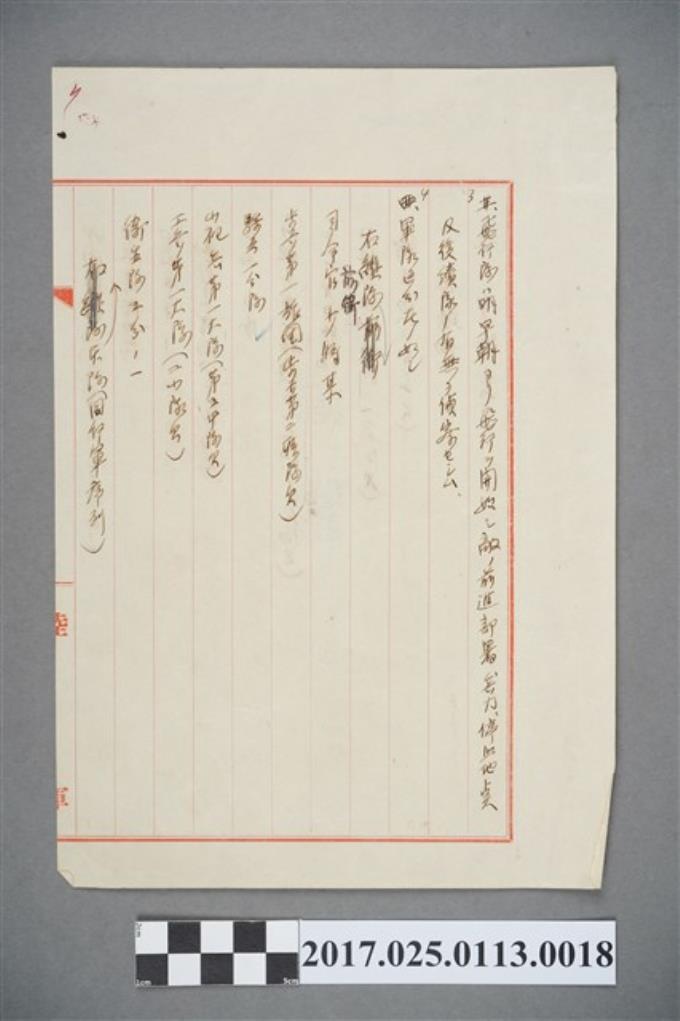 3 其、飛行隊ハ明早朝ヨリ飛行ヲ開始シ敵ノ前進部署兵力、停止地点
及後續隊ノ有無ヲ偵察セシム、
4 軍隊区分左ノ如シ
右縦隊前衛
司令官少将某
歩兵第一旅団(歩兵第二聯隊欠)
騎兵一分隊
山砲兵第一大隊(第三中隊欠)
工兵第一大隊(二小隊欠)
衛生隊二分ノ一
右縦隊本隊(同行軍序列)
陸
軍
2017.025.0113.0018